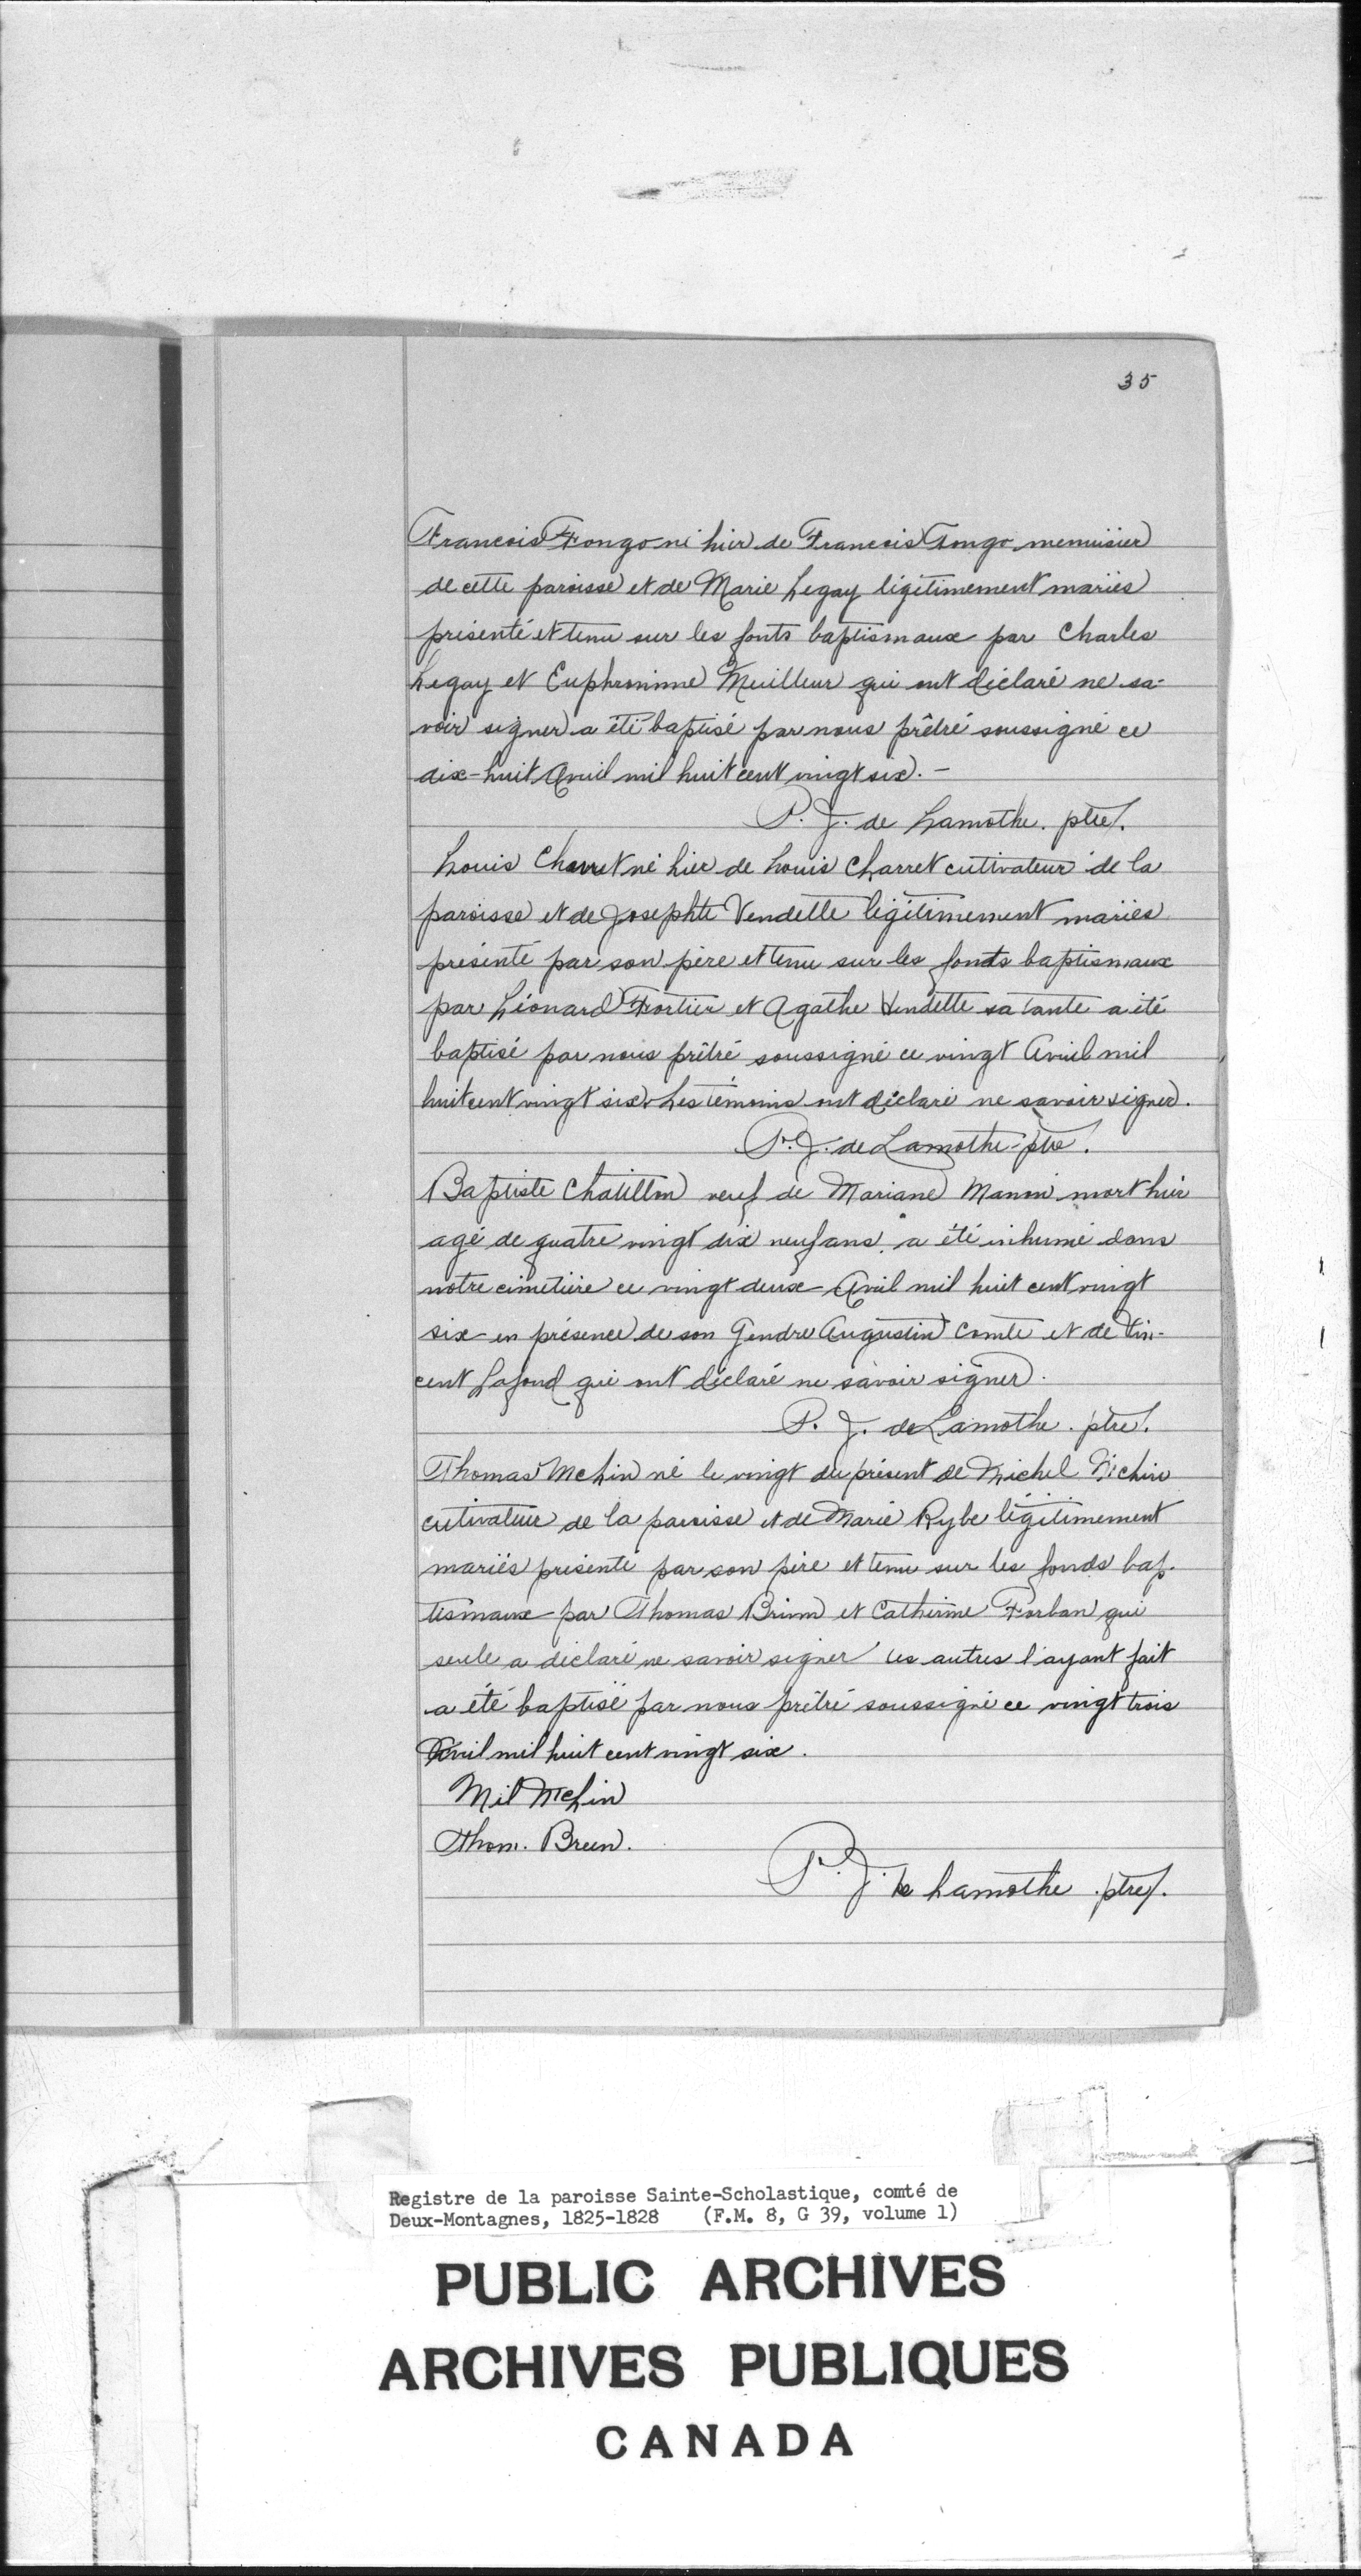 35
Francois Fongo né hier de Francois Fongo menuisier
de cette paroisse et de Marie Legay légitimement mariés
présenté et tenu sur les fonts baptismaux par Charles
Legay et Euphrosinne Meilleur qui ont déclaré ne sa-
voir signer a été baptisé par nous prêtré soussigné ce
dix-huit Avril mil huit cent vingt six. -
P. J. de Lamothe. ptre.
Louis Charret né hier de Louis Charret cutivateur de la
paroisse et de Josephte Vendette légitimement mariés
présenté par son père et tenu sur les fonds baptismaux
par Léonard Fortier et Agathe Vendette sa tante a été
baptisé par nous prêtré soussigné ce vingt Avril mil
huit cent vingt six. Les témoins ont déclaré ne savoir signer.
Pr. J. de Lamothe - ptre.
Baptiste Chatillon veuf de Mariane Manon mort hier
agé de quatre vingt dix neuf ans. a été inhumé dans
notre cimetière ce vingt deux Avril mil huit cent vingt
six en présence de son Gendre Augustin Comte et de Vin-
cent Lafond qui ont déclaré ne savoir signer.
P. J. de Lamothe. ptre.
Thomas McLin né le vingt du présent de Michel McLin
cutivateur de la paroisse et de Marie Rybe légitimement
mariés présenté par son père et tenu sur les fonds bap-
tismaux par Thomas Brinn et Catherine Forban qui
seule a déclaré ne savoir signer les autres l'ayant fait
a été baptisé par nous prêtré soussigné ce vingt trois
Avril mil huit cent vingt six.
Mil McLin
Thom. Breen.
Pr. J. de Lamothe. ptre.
Registre de la paroisse Sainte-Scholastique, comté de
Deux-Montagnes, 1825-1828 (F.M. 8, G 39, volume 1)
PUBLIC ARCHIVES
ARCHIVES PUBLIQUES
CANADA